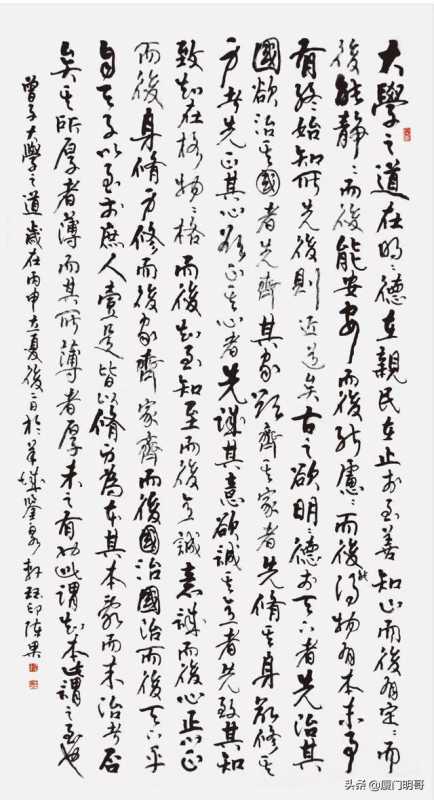 大學之道在明〻德在親民在止於至善知止而後有定〻而
後能静〻而後能安安而後能慮〻而後能得物有本末事
有終始知所先後則近道矣古之欲明〻德於天下者先治其
國欲治其國者先齊其家欲齊其家者先脩其身欲修其
身者先正其心欲正其心者先誠其意欲誠其意者先致其知
致知在格物〻格而後知至知至而後意誠意誠而後心正心正
而後身脩身修而後家齊家齊而後國治國治而後天下平
自天子以至於庶人壹是皆以脩身為本其本亂而末治者否
矣其所厚者薄而其所薄者厚未之有也此謂知本此謂知之至也
曾子大學之道歲在丙申立夏後二日於羊城鑒泉軒陳果
头条 @厦门明哥